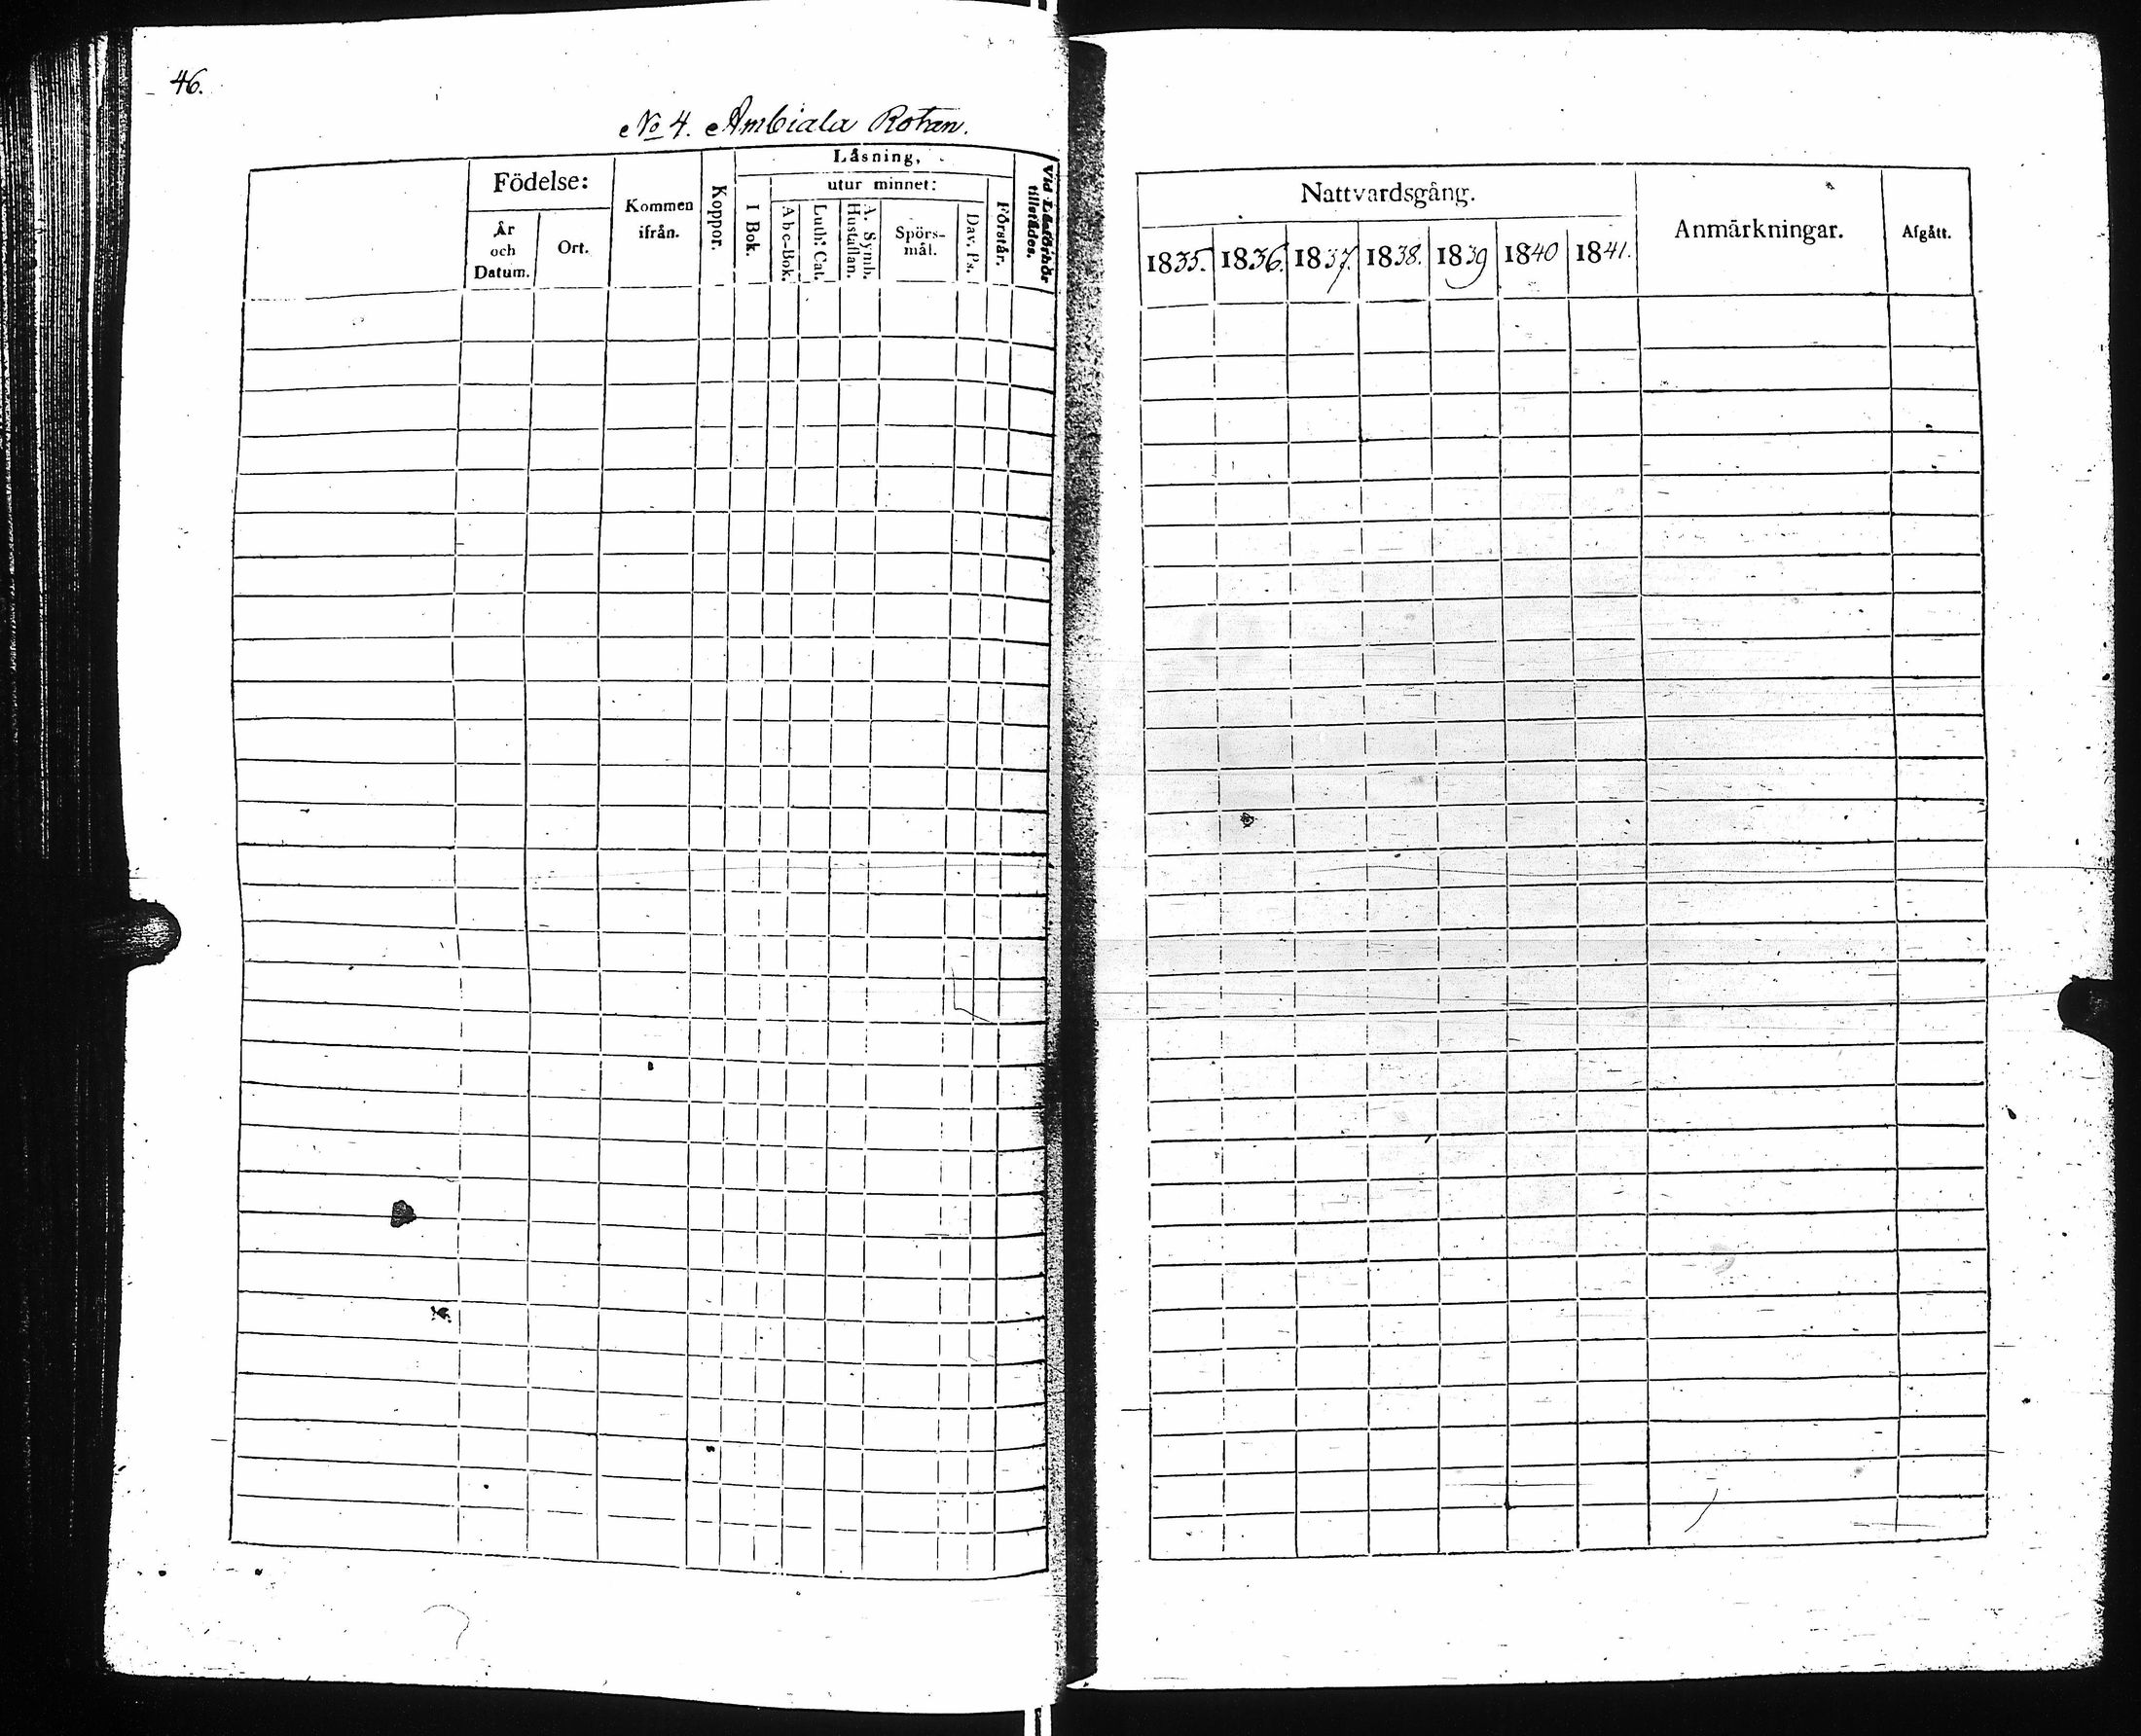 46.
No 4. Ambiala Rotan.
Födelse:
År och Datum.
Ort.
Kommen ifrån.
Koppor.
Läsning,
I Bok.
utur minnet:
Abc-Bok.
Luth. Cat.
A. Symb. Hustaflan.
Spörsmål.
Dav. Ps.
Förstår.
Vid Läsförhör tillstädes.
Nattvardsgång.
1835. 1836. 1837. 1838. 1839 1840 1841.
Anmärkningar.
Afgått.